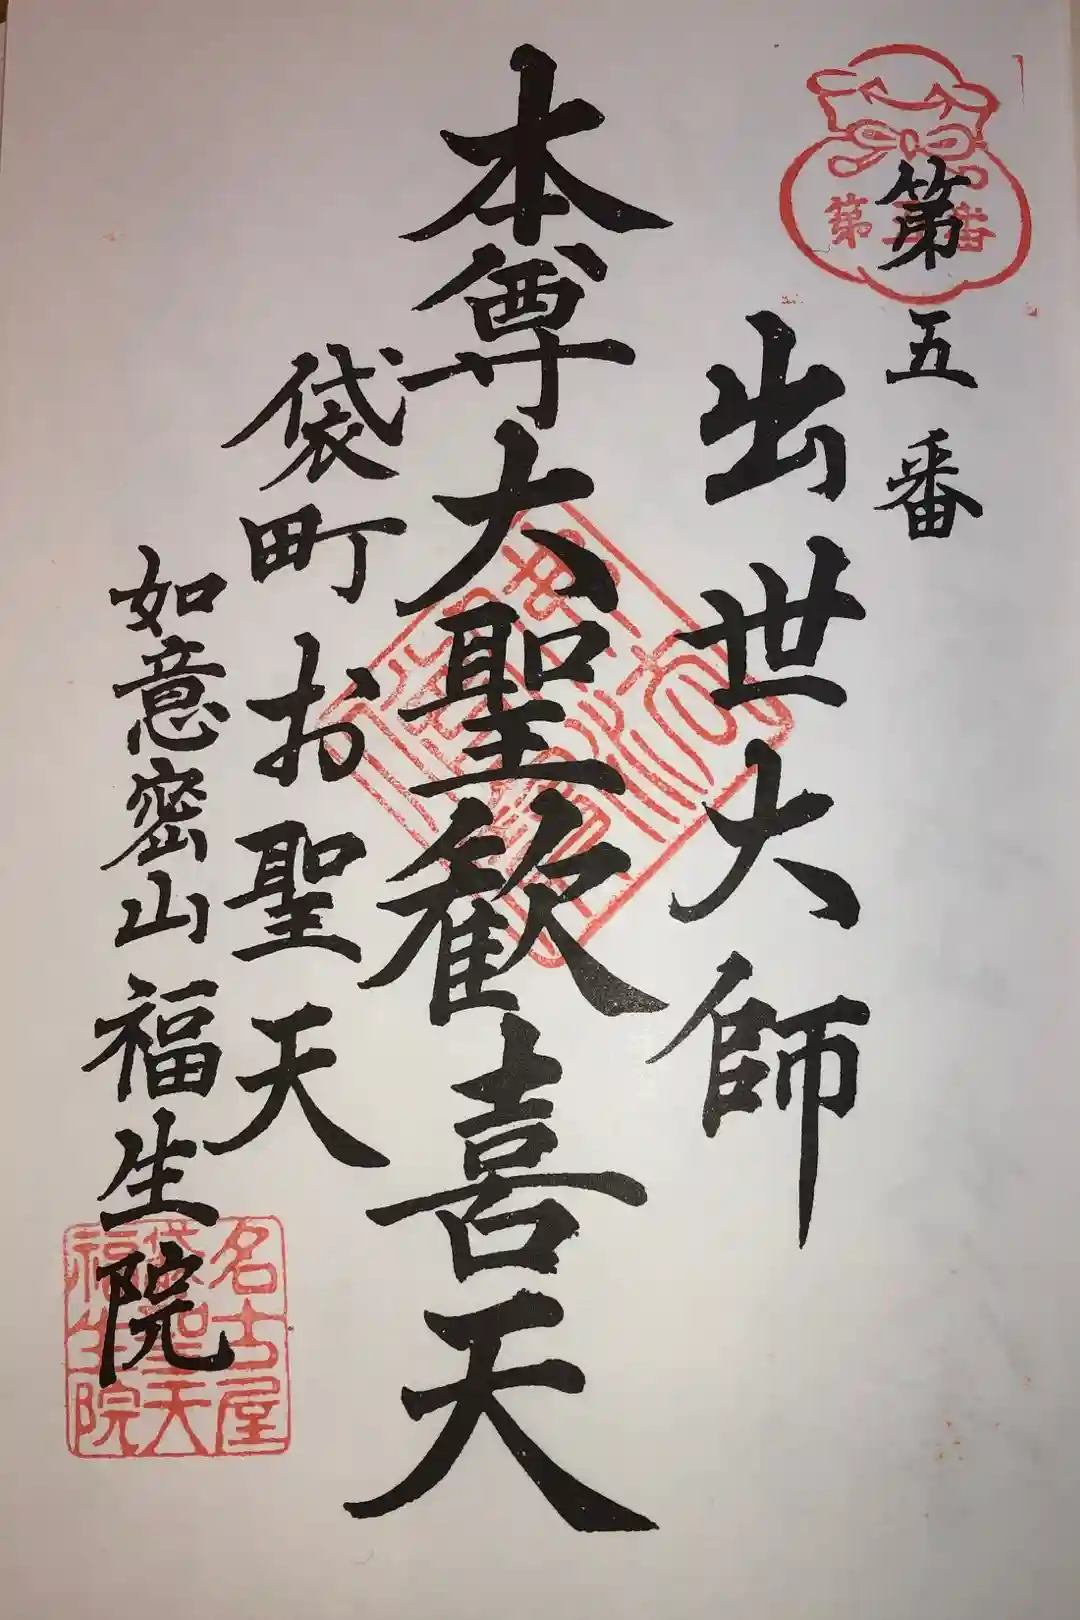 第五番
第五番
出世大師
本尊大聖歓喜天
袋町お聖天
如意密山福生院
名古屋
袋聖天
福生院